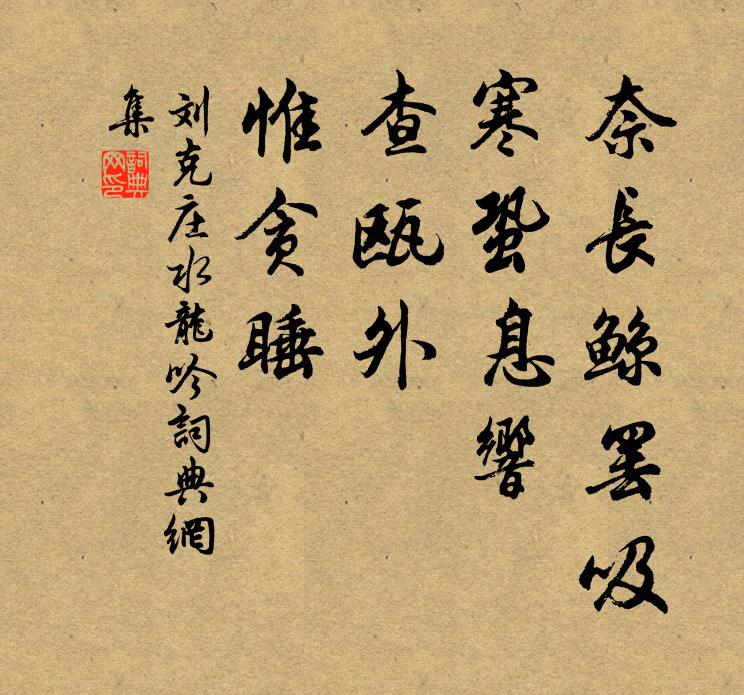 奈長鯨罢吸
寒蛩息響
查甌外
惟貪睡
刘克庄水龍吟詞典網
集
詞典
网印